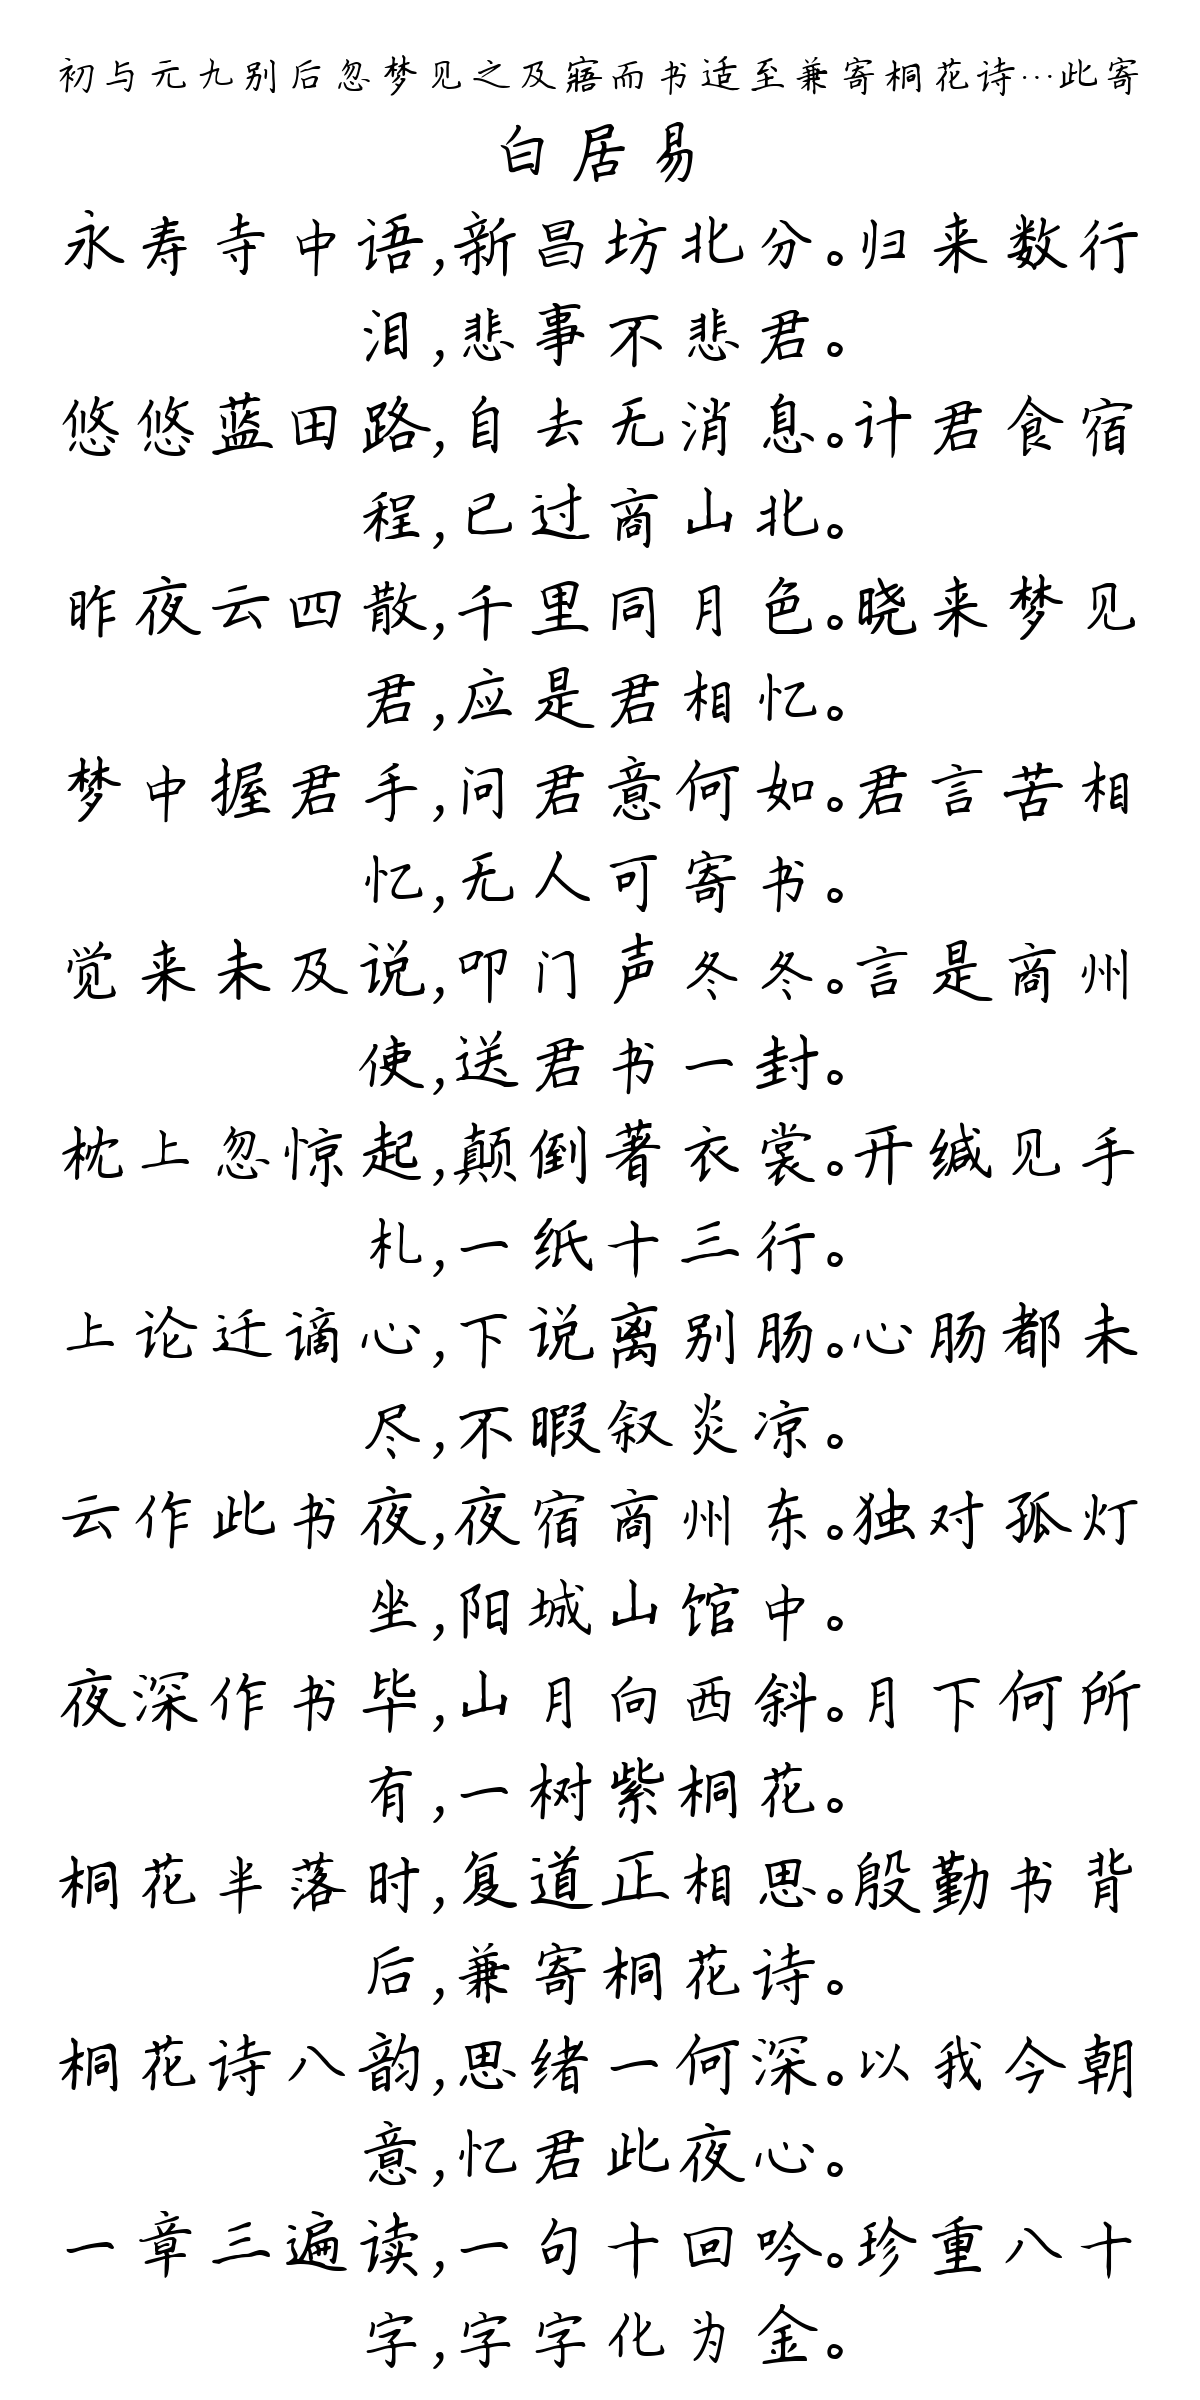 初与元九别后忽梦见之及寤而书适至兼寄桐花诗…此寄
白居易
永寿寺中语,新昌坊北分。归来数行
泪,悲事不悲君。
悠悠蓝田路,自去无消息。计君食宿
程,已过商山北。
昨夜云四散,千里同月色。晓来梦见
君,应是君相忆。
梦中握君手,问君意何如。君言苦相
忆,无人可寄书。
觉来未及说,叩门声冬冬。言是商州
使,送君书一封。
枕上忽惊起,颠倒著衣裳。开缄见手
札,一纸十三行。
上论迁谪心,下说离别肠。心肠都未
尽,不暇叙炎凉。
云作此书夜,夜宿商州东。独对孤灯
坐,阳城山馆中。
夜深作书毕,山月向西斜。月下何所
有,一树紫桐花。
桐花半落时,复道正相思。殷勤书背
后,兼寄桐花诗。
桐花诗八韵,思绪一何深。以我今朝
意,忆君此夜心。
一章三遍读,一句十回吟。珍重八十
字,字字化为金。